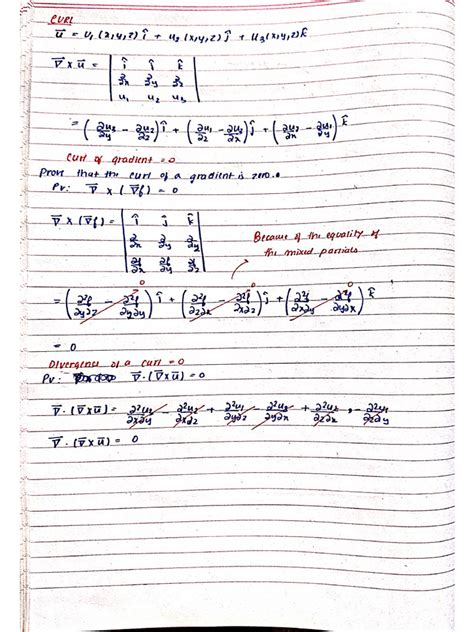 CURL
u̅ = u₁(x,y,z) î + u₂(x,y,z) ĵ + u₃(x,y,z) k̂
∇̅ × u̅ = | î ĵ k̂ |
| ∂/∂x ∂/∂y ∂/∂z |
| u₁ u₂ u₃ |
= (∂u₃/∂y − ∂u₂/∂z) î + (∂u₁/∂z − ∂u₃/∂x) ĵ + (∂u₂/∂x − ∂u₁/∂y) k̂
Curl of gradient = 0
Prove that the curl of a gradient is zero.
Pv: ∇̅ × (∇̅f) = 0
∇̅ × (∇̅f) = | î ĵ k̂ |
| ∂/∂x ∂/∂y ∂/∂z |
| ∂f/∂x ∂f/∂y ∂f/∂z |
Because of the equality of
the mixed partials
0 0 0
= (∂²f/∂y∂z − ∂²f/∂y∂y) î + (∂²f/∂z∂x − ∂²f/∂x∂z) ĵ + (∂²f/∂x∂y − ∂²f/∂y∂x) k̂
= 0
Divergence of a curl = 0
Pv: ∇̅ · (∇̅ × u̅) = 0
∇̅ · (∇̅ × u̅) = ∂²u₃/∂x∂y − ∂²u₂/∂x∂z + ∂²u₁/∂y∂z − ∂²u₃/∂y∂x + ∂²u₂/∂z∂x − ∂²u₁/∂z∂y
∇̅ · (∇̅ × u̅) = 0